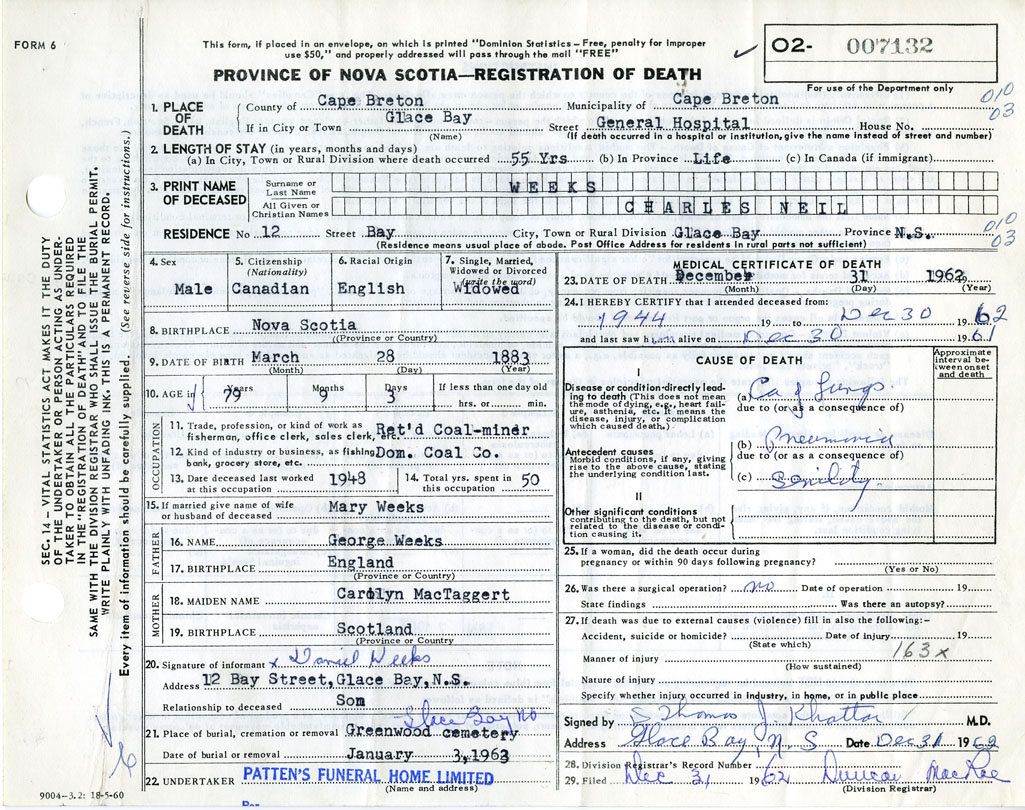 FORM 6
This form, if placed in an envelope, on which is printed "Dominion Statistics – Free, penalty for improper
use $50," and properly addressed will pass through the mail "FREE"
O2- 007132
For use of the Department only
PROVINCE OF NOVA SCOTIA—REGISTRATION OF DEATH
010
03
1. PLACE OF DEATH
County of Cape Breton Municipality of Cape Breton
If in City or Town Glace Bay Street General Hospital House No.
(Name) (If death occurred in a hospital or institution, give the name instead of street and number)
2. LENGTH OF STAY (in years, months and days)
(a) In City, Town or Rural Division where death occurred 55 Yrs (b) In Province Life (c) In Canada (if immigrant)
3. PRINT NAME OF DECEASED
Surname or Last Name WEEKS
All Given or Christian Names CHARLES NEIL
RESIDENCE No 12 Street Bay City, Town or Rural Division Glace Bay Province N.S.
010
03
(Residence means usual place of abode. Post Office Address for residents in rural parts not sufficient)
4. Sex Male
5. Citizenship (Nationality) Canadian
6. Racial Origin English
7. Single, Married, Widowed or Divorced (write the word) Widowed
8. BIRTHPLACE Nova Scotia
(Province or Country)
9. DATE OF BIRTH March 28 1883
(Month) (Day) (Year)
10. AGE in Years 79 Months 9 Days 3 If less than one day old
hrs. or min.
OCCUPATION
11. Trade, profession, or kind of work as fisherman, office clerk, sales clerk, etc. Ret'd Coal-miner
12. Kind of industry or business, as fishing, bank, grocery store, etc. Dom. Coal Co.
13. Date deceased last worked at this occupation 1948
14. Total yrs. spent in this occupation 50
15. If married give name of wife or husband of deceased Mary Weeks
FATHER
16. NAME George Weeks
17. BIRTHPLACE England
(Province or Country)
MOTHER
18. MAIDEN NAME Carolyn MacTaggert
19. BIRTHPLACE Scotland
(Province or Country)
20. Signature of informant x Daniel Weeks
Address 12 Bay Street, Glace Bay, N.S.
Relationship to deceased Son
Glace Bay NS
21. Place of burial, cremation or removal Greenwood cemetery
Date of burial or removal January 3, 1963
22. UNDERTAKER PATTEN'S FUNERAL HOME LIMITED
(Name and address)
Per
9004–3.2: 18-5-60
MEDICAL CERTIFICATE OF DEATH
23. DATE OF DEATH December 31 1962
(Month) (Day) (Year)
24. I HEREBY CERTIFY that I attended deceased from:
1944 19 to Dec 30 1962
and last saw him alive on Dec 30 1961
CAUSE OF DEATH
Approximate interval between onset and death
I
Disease or condition directly leading to death (This does not mean the mode of dying, e.g., heart failure, asthenia, etc. It means the disease, injury, or complication which caused death.)
(a) Ca of Lungs
due to (or as a consequence of)
(b) Pneumonia
due to (or as a consequence of)
Antecedent causes
Morbid conditions, if any, giving rise to the above cause, stating the underlying condition last.
(c) Senility
II
Other significant conditions
contributing to the death, but not related to the disease or condition causing it.
25. If a woman, did the death occur during
pregnancy or within 90 days following pregnancy?
(Yes or No)
26. Was there a surgical operation? no Date of operation 19
State findings Was there an autopsy?
27. If death was due to external causes (violence) fill in also the following:–
Accident, suicide or homicide? Date of injury 19
(State which)
163x
Manner of injury
(How sustained)
Nature of injury
Specify whether injury occurred in industry, in home, or in public place
Signed by Thomas J. Khattar M.D.
Address Glace Bay, N S Date Dec 31 1962
28. Division Registrar's Record Number
29. Filed Dec 31 1962 Duncan MacRae
(Division Registrar)
SEC. 14 – VITAL STATISTICS ACT MAKES IT THE DUTY
OF THE UNDERTAKER OR PERSON ACTING AS UNDER-
TAKER TO OBTAIN ALL THE PARTICULARS REQUIRED
IN THE "REGISTRATION OF DEATH" AND TO FILE THE
SAME WITH THE DIVISION REGISTRAR WHO SHALL ISSUE THE BURIAL PERMIT.
WRITE PLAINLY WITH UNFADING INK. THIS IS A PERMANENT RECORD.
Every item of information should be carefully supplied. (See reverse side for instructions.)